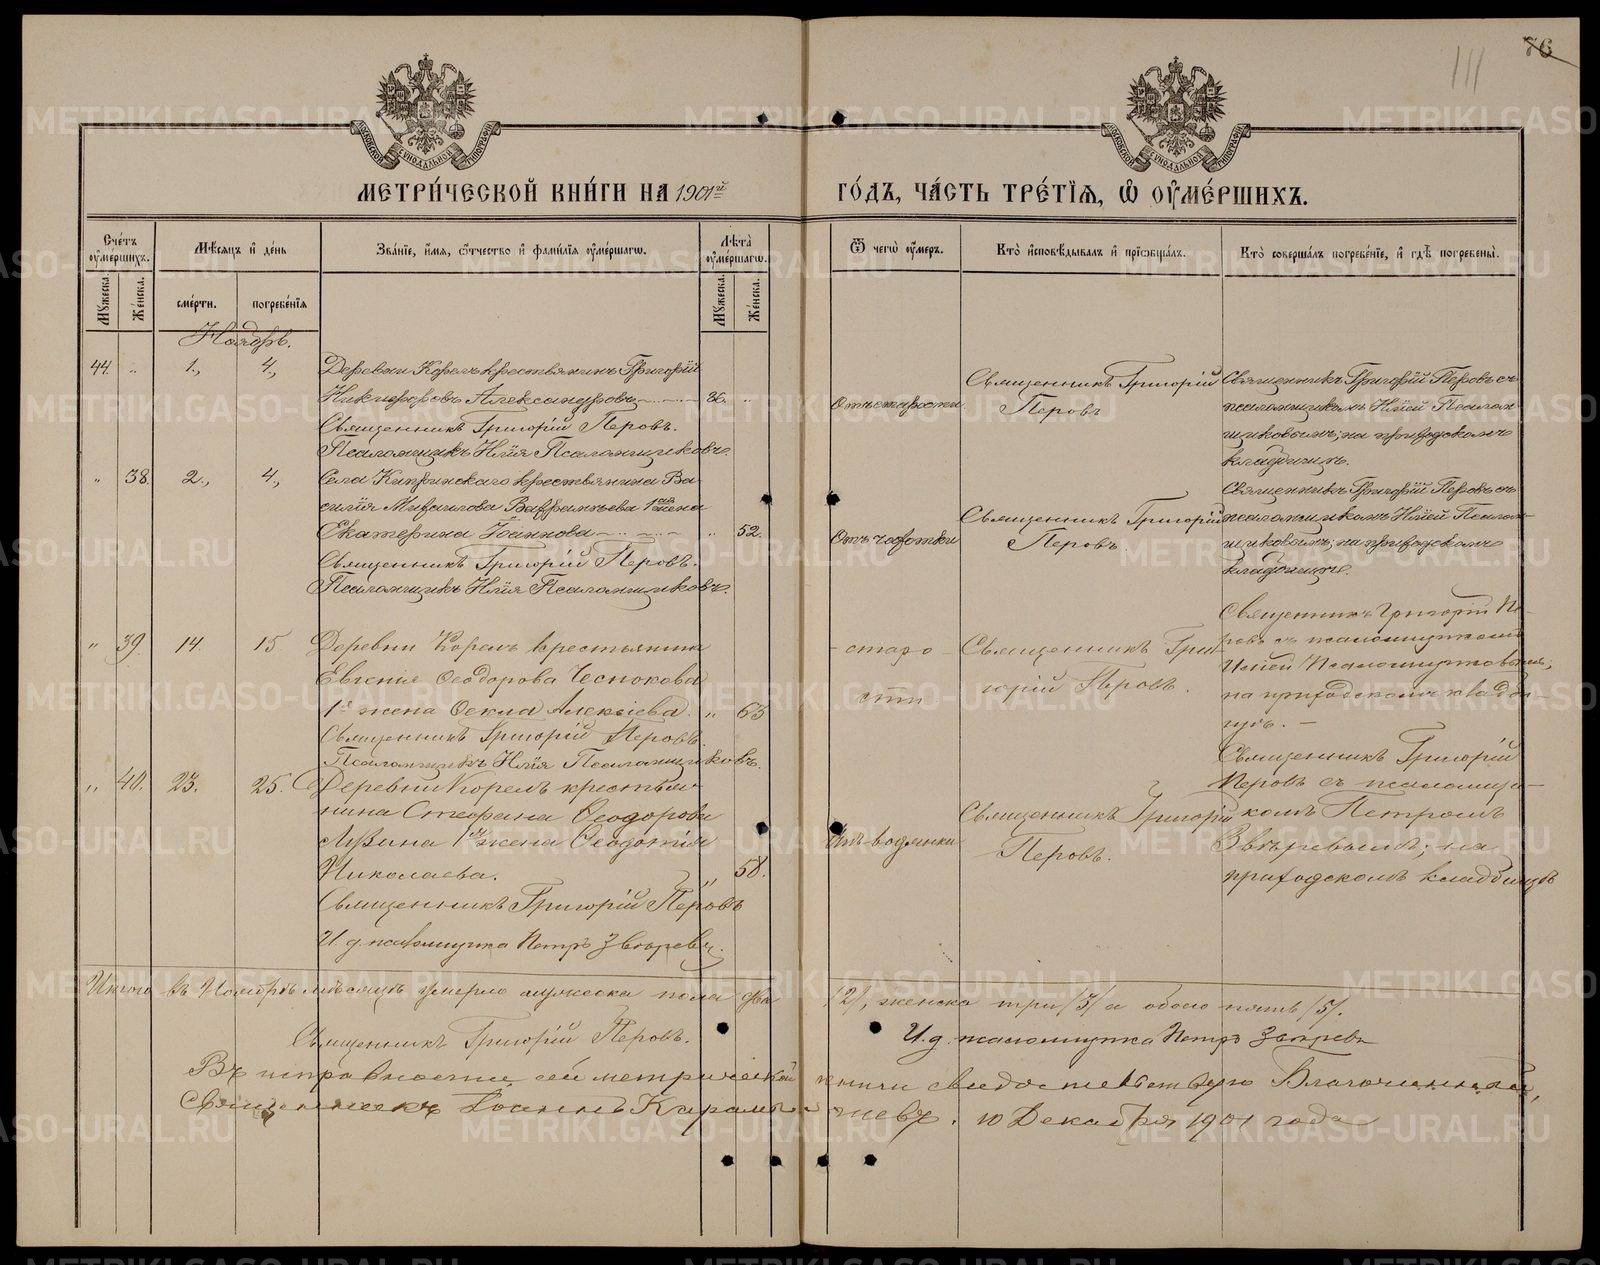 111
76
МЕТРИ́ЧЕСКОЙ КНИ́ГИ НА 1901й
ГО́ДЪ, ЧА́СТЬ ТРЕ́ТІѦ, Ѿ ОУМЕ́РШИХЪ.
Сче́тъ оумершихъ.
Мꙋжеска.
Же́нска.
Мѣсяцъ и де́нь
сме́рти.
погребе́нїя
Зва́нїе, и́мя, о́тчество и фами́лїя оуме́ршагѡ.
Лѣта̀ оуме́ршагѡ.
Мꙋжеска.
Же́нска.
Ѿ чегѡ̀ оу́меръ.
Кто̀ и҆сповѣ́дывалъ и҆ прїѡбща́лъ.
Кто̀ соверша́лъ погребе́нїе, и҆ гдѣ̀ погребены̀.
Ноябрь.
44. „ 1., 4., Деревни Корелъ крестьянинъ Григорій
Никифоровъ Александровъ 86. „
Священникъ Григорій Перовъ.
Псаломщикъ Илія Псаломщиковъ
Отъ старости
Священникъ Григорій
Перовъ
Священникъ Григорій Перовъ съ
псаломщикомъ Иліей Псалом-
щиковымъ; на приходскомъ
кладбищѣ.
„ 38. 2., 4., Села Кипринскаго крестьянина Ва-
силія Михаилова Варфоломѣева 1ая жена
Екатерина Іоаннова „ 52.
Священникъ Григорій Перовъ.
Псаломщикъ Илія Псаломщиковъ.
Отъ чахотки
Священникъ Григорій
Перовъ.
Священникъ Григорій Перовъ съ
псаломщикомъ Иліей Псалом-
щиковымъ; на приходскомъ
кладбищѣ.
„ 39. 14. 15. Деревни Корелъ крестьянина
Евгенія Ѳеодорова Чеснокова
1я жена Ѳекла Алексіева. „ 63
Священникъ Григорій Перовъ.
Псаломщикъ Илія Псаломщиковъ.
старо-
сти
Священникъ Гри-
горій Перовъ.
Священникъ Григорій Пе-
ровъ съ псаломщикомъ
Иліей Псаломщиковымъ,
на приходскомъ кладби-
щѣ. —
„ 40. 23. 25. Деревни Корелъ крестья-
нина Стефана Ѳеодорова
Лузина 1я жена Ѳеодотія
Николаева. „ 58.
Священникъ Григорій Перовъ
И. д. псаломщика Петръ Звѣревъ.
Отъ водянки
Священникъ Григорій
Перовъ.
Священникъ Григорій
Перовъ съ псаломщи-
комъ Петромъ
Звѣревымъ; на
приходскомъ кладбищѣ
Итого въ Ноябрѣ мѣсяцѣ умерло мужеска пола два /2/, женска три /3/ а обоего пять /5/.
Священникъ Григорій Перовъ.
И. д. псаломщика Петръ Звѣревъ
Въ исправности сей метрической книги свидетельствую Благочинный,
Священникъ Іоаннъ 10 Декабря 1901 года
METRIKI.GASO-URAL.RU